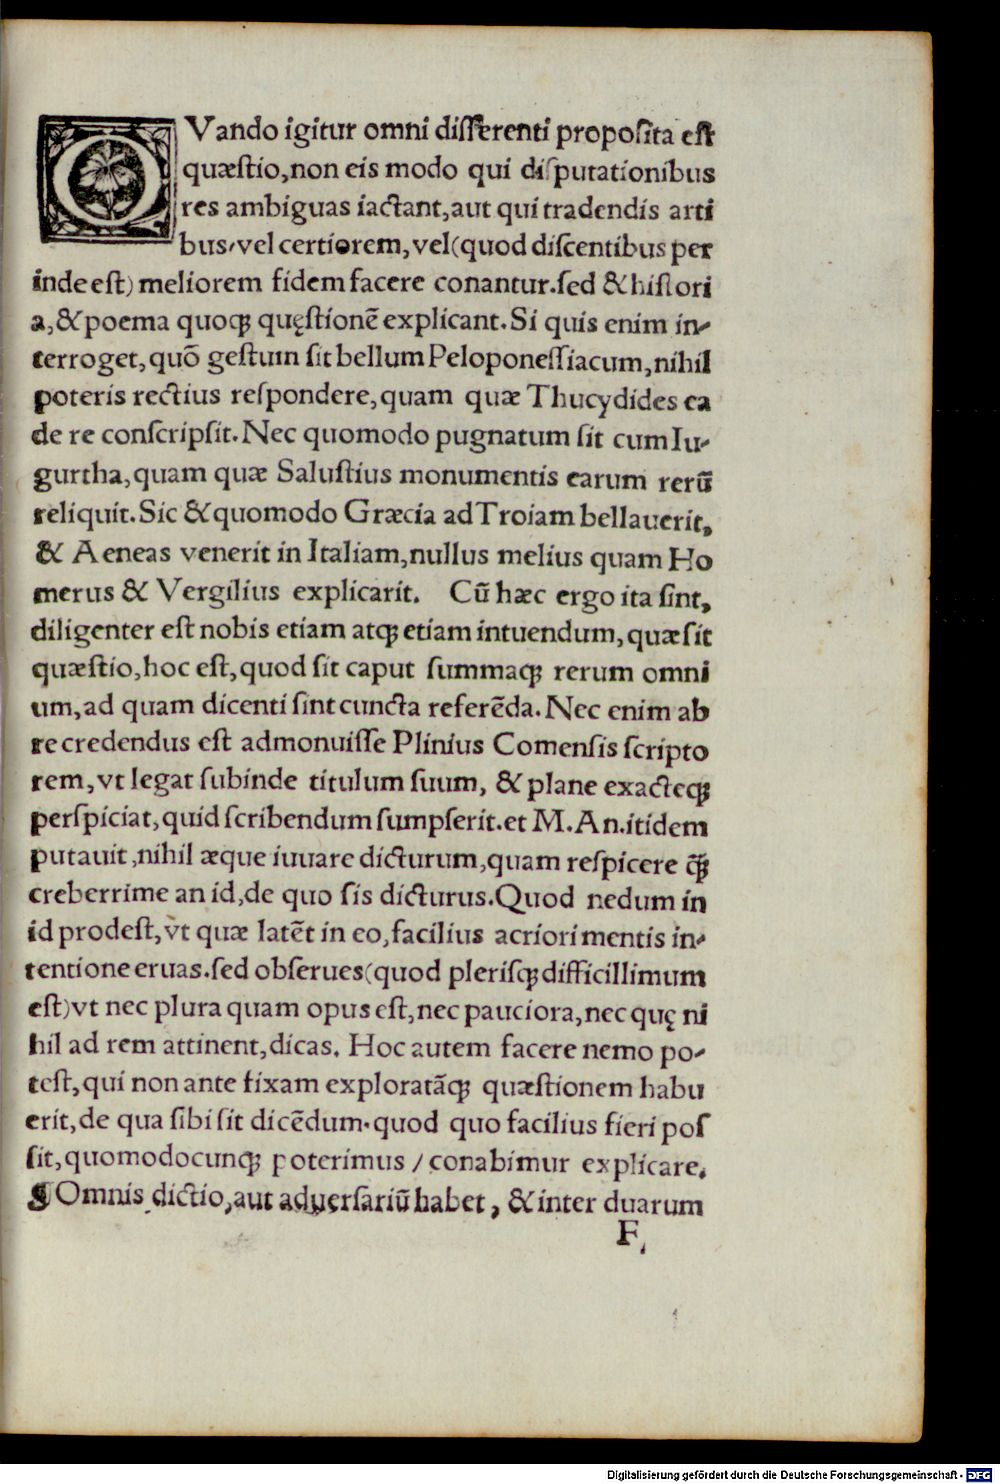 QVando igitur omni disserenti proposita est
quæstio, non eis modo qui disputationibus
res ambiguas iactant, aut qui tradendis arti
bus, vel certiorem, vel (quod discentibus per
inde est) meliorem fidem facere conantur. sed & histori
a, & poema quoqꝫ quęstionē explicant. Si quis enim in-
terroget, quō gestum sit bellum Peloponessiacum, nihil
poteris rectius respondere, quam quæ Thucydides ea
de re conscripsit. Nec quomodo pugnatum sit cum Iu-
gurtha, quam quæ Salustius monumentis earum rerū
reliquit. Sic & quomodo Græcia ad Troiam bellauerit,
& Aeneas venerit in Italiam, nullus melius quam Ho
merus & Vergilius explicarit. Cū hæc ergo ita sint,
diligenter est nobis etiam atqꝫ etiam intuendum, quæ sit
quæstio, hoc est, quod sit caput summaqꝫ rerum omni
um, ad quam dicenti sint cuncta referēda. Nec enim ab
re credendus est admonuisse Plinius Comensis scripto
rem, vt legat subinde titulum suum, & plane exacteqꝫ
perspiciat, quid scribendum sumpserit. et M. An. itidem
putauit, nihil æque iuuare dicturum, quam respicere q̄ꝫ
creberrime an id, de quo sis dicturus. Quod nedum in
id prodest, vt quæ latēt in eo, facilius acriori mentis in-
tentione eruas. sed obserues (quod plerisqꝫ difficillimum
est) vt nec plura quam opus est, nec pauciora, nec quę ni
hil ad rem attinent, dicas. Hoc autem facere nemo po-
test, qui non ante fixam exploratāqꝫ quæstionem habu
erit, de qua sibi sit dicēdum. quod quo facilius fieri pos
sit, quomodocunqꝫ poterimus / conabimur explicare.
¶ Omnis dictio, aut aduersariū habet, & inter duarum
F
Digitalisierung gefördert durch die Deutsche Forschungsgemeinschaft - DFG